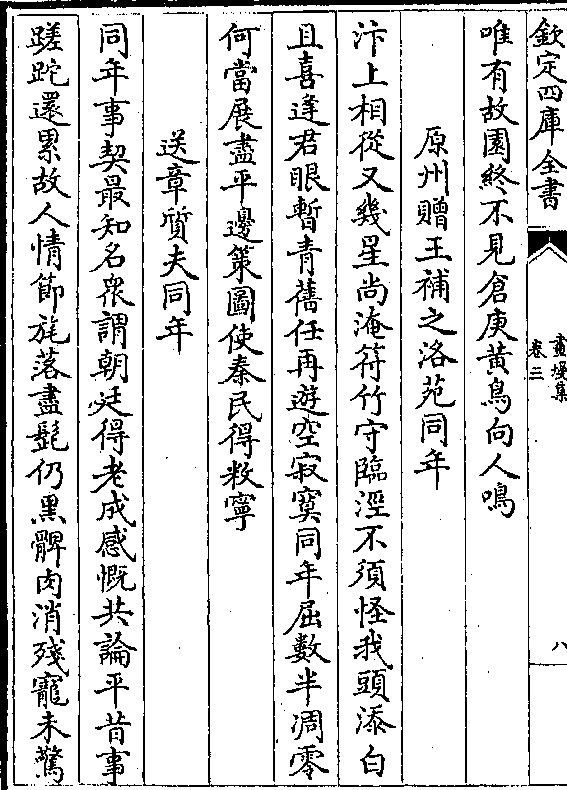 欽定四庫全書
畫墁集
卷三
八
唯有故園終不見倉庚黄鳥向人鳴
原州贈王補之洛苑同年
汴上相從又幾星尚淹符竹守臨涇不須怪我頭添白
且喜逢君眼暫青舊任再遊空寂寞同年屈數半凋零
何當展盡平邊策圖使秦民得敉寧
送章質夫同年
同年事契最知名衆謂朝廷得老成感慨共論平昔事
蹉跎還累故人情節旄落盡髭仍黑髀肉消殘寵未驚